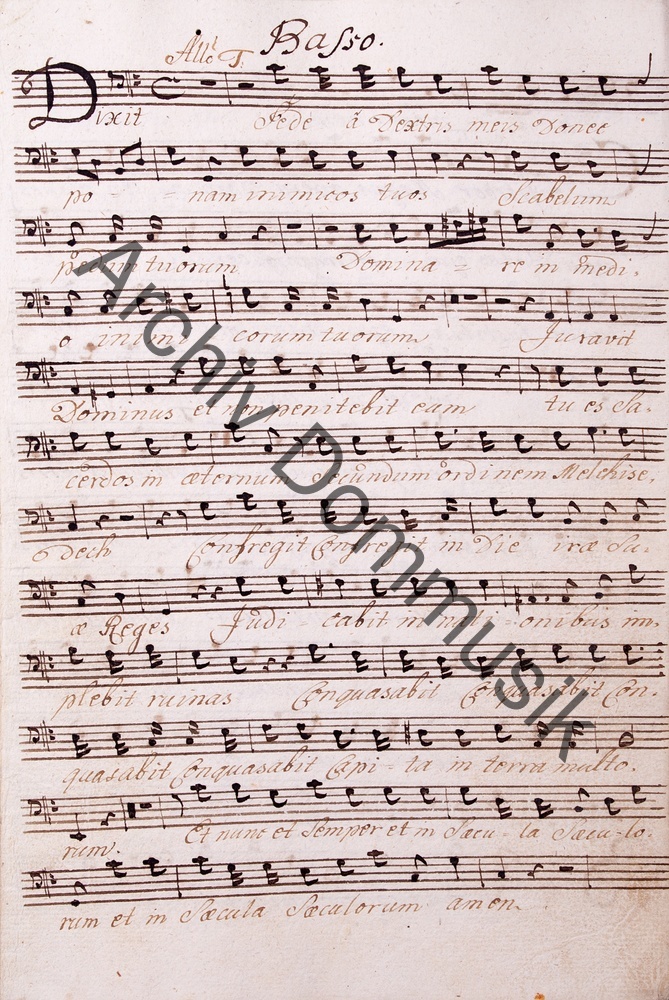 Basso.
All.º T.
Dixit Sede à Dextris meis Donec
po - - nam inimicos tuos Scabelum
pedum tuorum Domina - re in medi,
o inimi corum tuorum Juravit
Dominus et non penitebit eum tu es Sa,
cerdos in æternum Secundum ordinem Melchise,
dech Confregit Confregit in Die iræ Su,
æ Reges Judi - cabit in nati - onibus im,
plebit ruinas Conquasabit Conquasabit Con,
quasabit Conquasabit Capi - ta in terra multo,
rum. Et nunc et Semper et in Sæcu - la Sæcu - lo,
rum et in Sæcula Sæculorum amen.
Archiv Dommusik